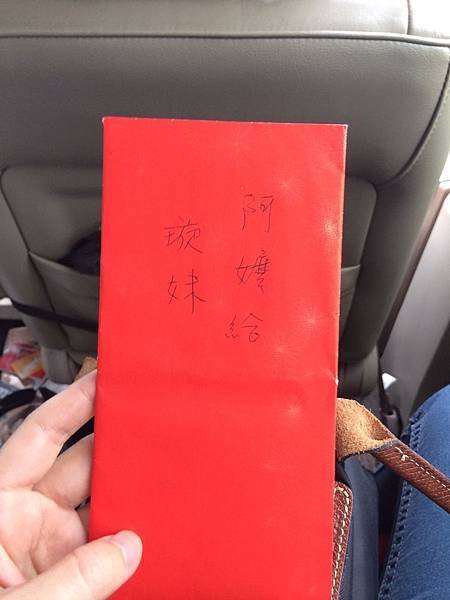 阿嬤給
璇妹